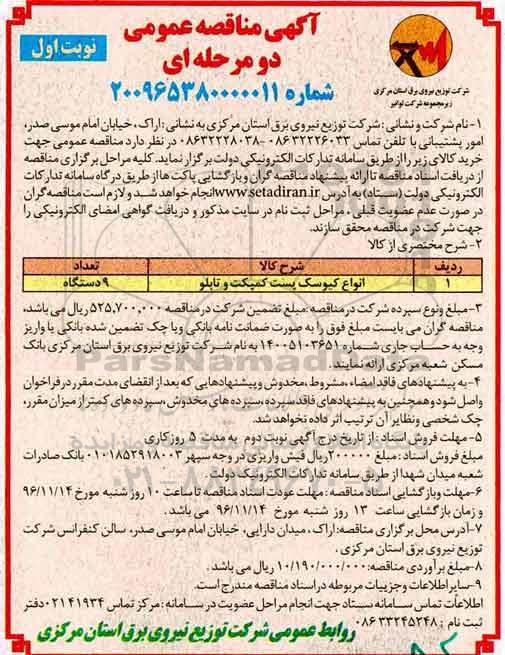 آگهی مناقصه عمومی
دو مرحله ای
شماره ۲۰۰۹۶۵۳۸۰۰۰۰۰۱۱
نوبت اول
شرکت توزیع نیروی برق استان مرکزی
زیرمجموعه شرکت توانیر
۱- نام شرکت و نشانی : شرکت توزیع نیروی برق استان مرکزی به نشانی : اراک ، خیابان امام موسی صدر،
امور پشتیبانی با تلفن تماس ۰۸۶۳۲۲۲۶۰۳۳ - ۰۸۶۳۲۲۲۸۰۳۸ در نظر دارد مناقصه عمومی جهت
خرید کالای زیر را از طریق سامانه تدارکات الکترونیکی دولت برگزار نماید. کلیه مراحل برگزاری مناقصه
از دریافت اسناد مناقصه تا ارائه پیشنهاد مناقصه گران و بازگشایی پاکت ها از طریق درگاه سامانه تدارکات
الکترونیکی دولت (ستاد) به آدرس www.setadiran.ir انجام خواهد شد و لازم است مناقصه گران
در صورت عدم عضویت قبلی ، مراحل ثبت نام در سایت مذکور و دریافت گواهی امضای الکترونیکی را
جهت شرکت در مناقصه محقق سازند.
۲- شرح مختصری از کالا
ردیف شرح کالا تعداد
۱ انواع کیوسک پست کمپکت و تابلو ۹ دستگاه
۳- مبلغ ونوع سپرده شرکت در مناقصه :مبلغ تضمین شرکت در مناقصه ۵۲۵,۷۰۰,۰۰۰ ریال می باشد،
مناقصه گران می بایست مبلغ فوق را به صورت ضمانت نامه بانکی ویا چک تضمین شده بانکی یا واریز
وجه به حساب جاری شماره ۱۴۰۰۵۱۰۳۶۵۱ به نام شرکت توزیع نیروی برق استان مرکزی بانک
مسکن شعبه مرکزی ارائه نمایند.
۴- به پیشنهادهای فاقد امضاء، مشروط ،مخدوش و پیشنهادهایی که بعد از انقضای مدت مقرر در فراخوان
واصل شود و همچنین به پیشنهادهای فاقد سپرده ،سپرده های مخدوش ،سپرده های کمتر از میزان مقرر،
چک شخصی و نظایر آن ترتیب اثر داده نخواهد شد.
۵- مهلت فروش اسناد : از تاریخ درج آگهی نوبت دوم به مدت ۵ روز کاری
مبلغ فروش اسناد : مبلغ ۲۰۰۰۰۰ ریال فیش واریزی در وجه سپهر ۰۱۰۱۸۵۲۹۱۸۰۰۳ بانک صادرات
شعبه میدان شهدا از طریق سامانه تدارکات الکترونیک دولت
۶- مهلت وبازگشایی اسناد مناقصه : مهلت عودت اسناد مناقصه تا ساعت ۱۰ روز شنبه مورخ ۹۶/۱۱/۱۴
و زمان بازگشایی ساعت ۱۳ روز شنبه مورخ ۹۶/۱۱/۱۴ می باشد .
۷- آدرس محل برگزاری مناقصه: اراک ، میدان دارایی، خیابان امام موسی صدر، سالن کنفرانس شرکت
توزیع نیروی برق استان مرکزی .
۸- مبلغ برآوردی مناقصه: ۱۰/۱۹۰/۰۰۰/۰۰۰ ریال می باشد .
۹- سایر اطلاعات و جزییات مربوطه در اسناد مناقصه مندرج است.
اطلاعات تماس سامانه ستاد جهت انجام مراحل عضویت در سامانه : مرکز تماس ۰۲۱۴۱۹۳۴ دفتر
ثبت نام : ۰۸۶۳۳۲۴۵۲۴۸
روابط عمومی شرکت توزیع نیروی برق استان مرکزی
ParsNamadData